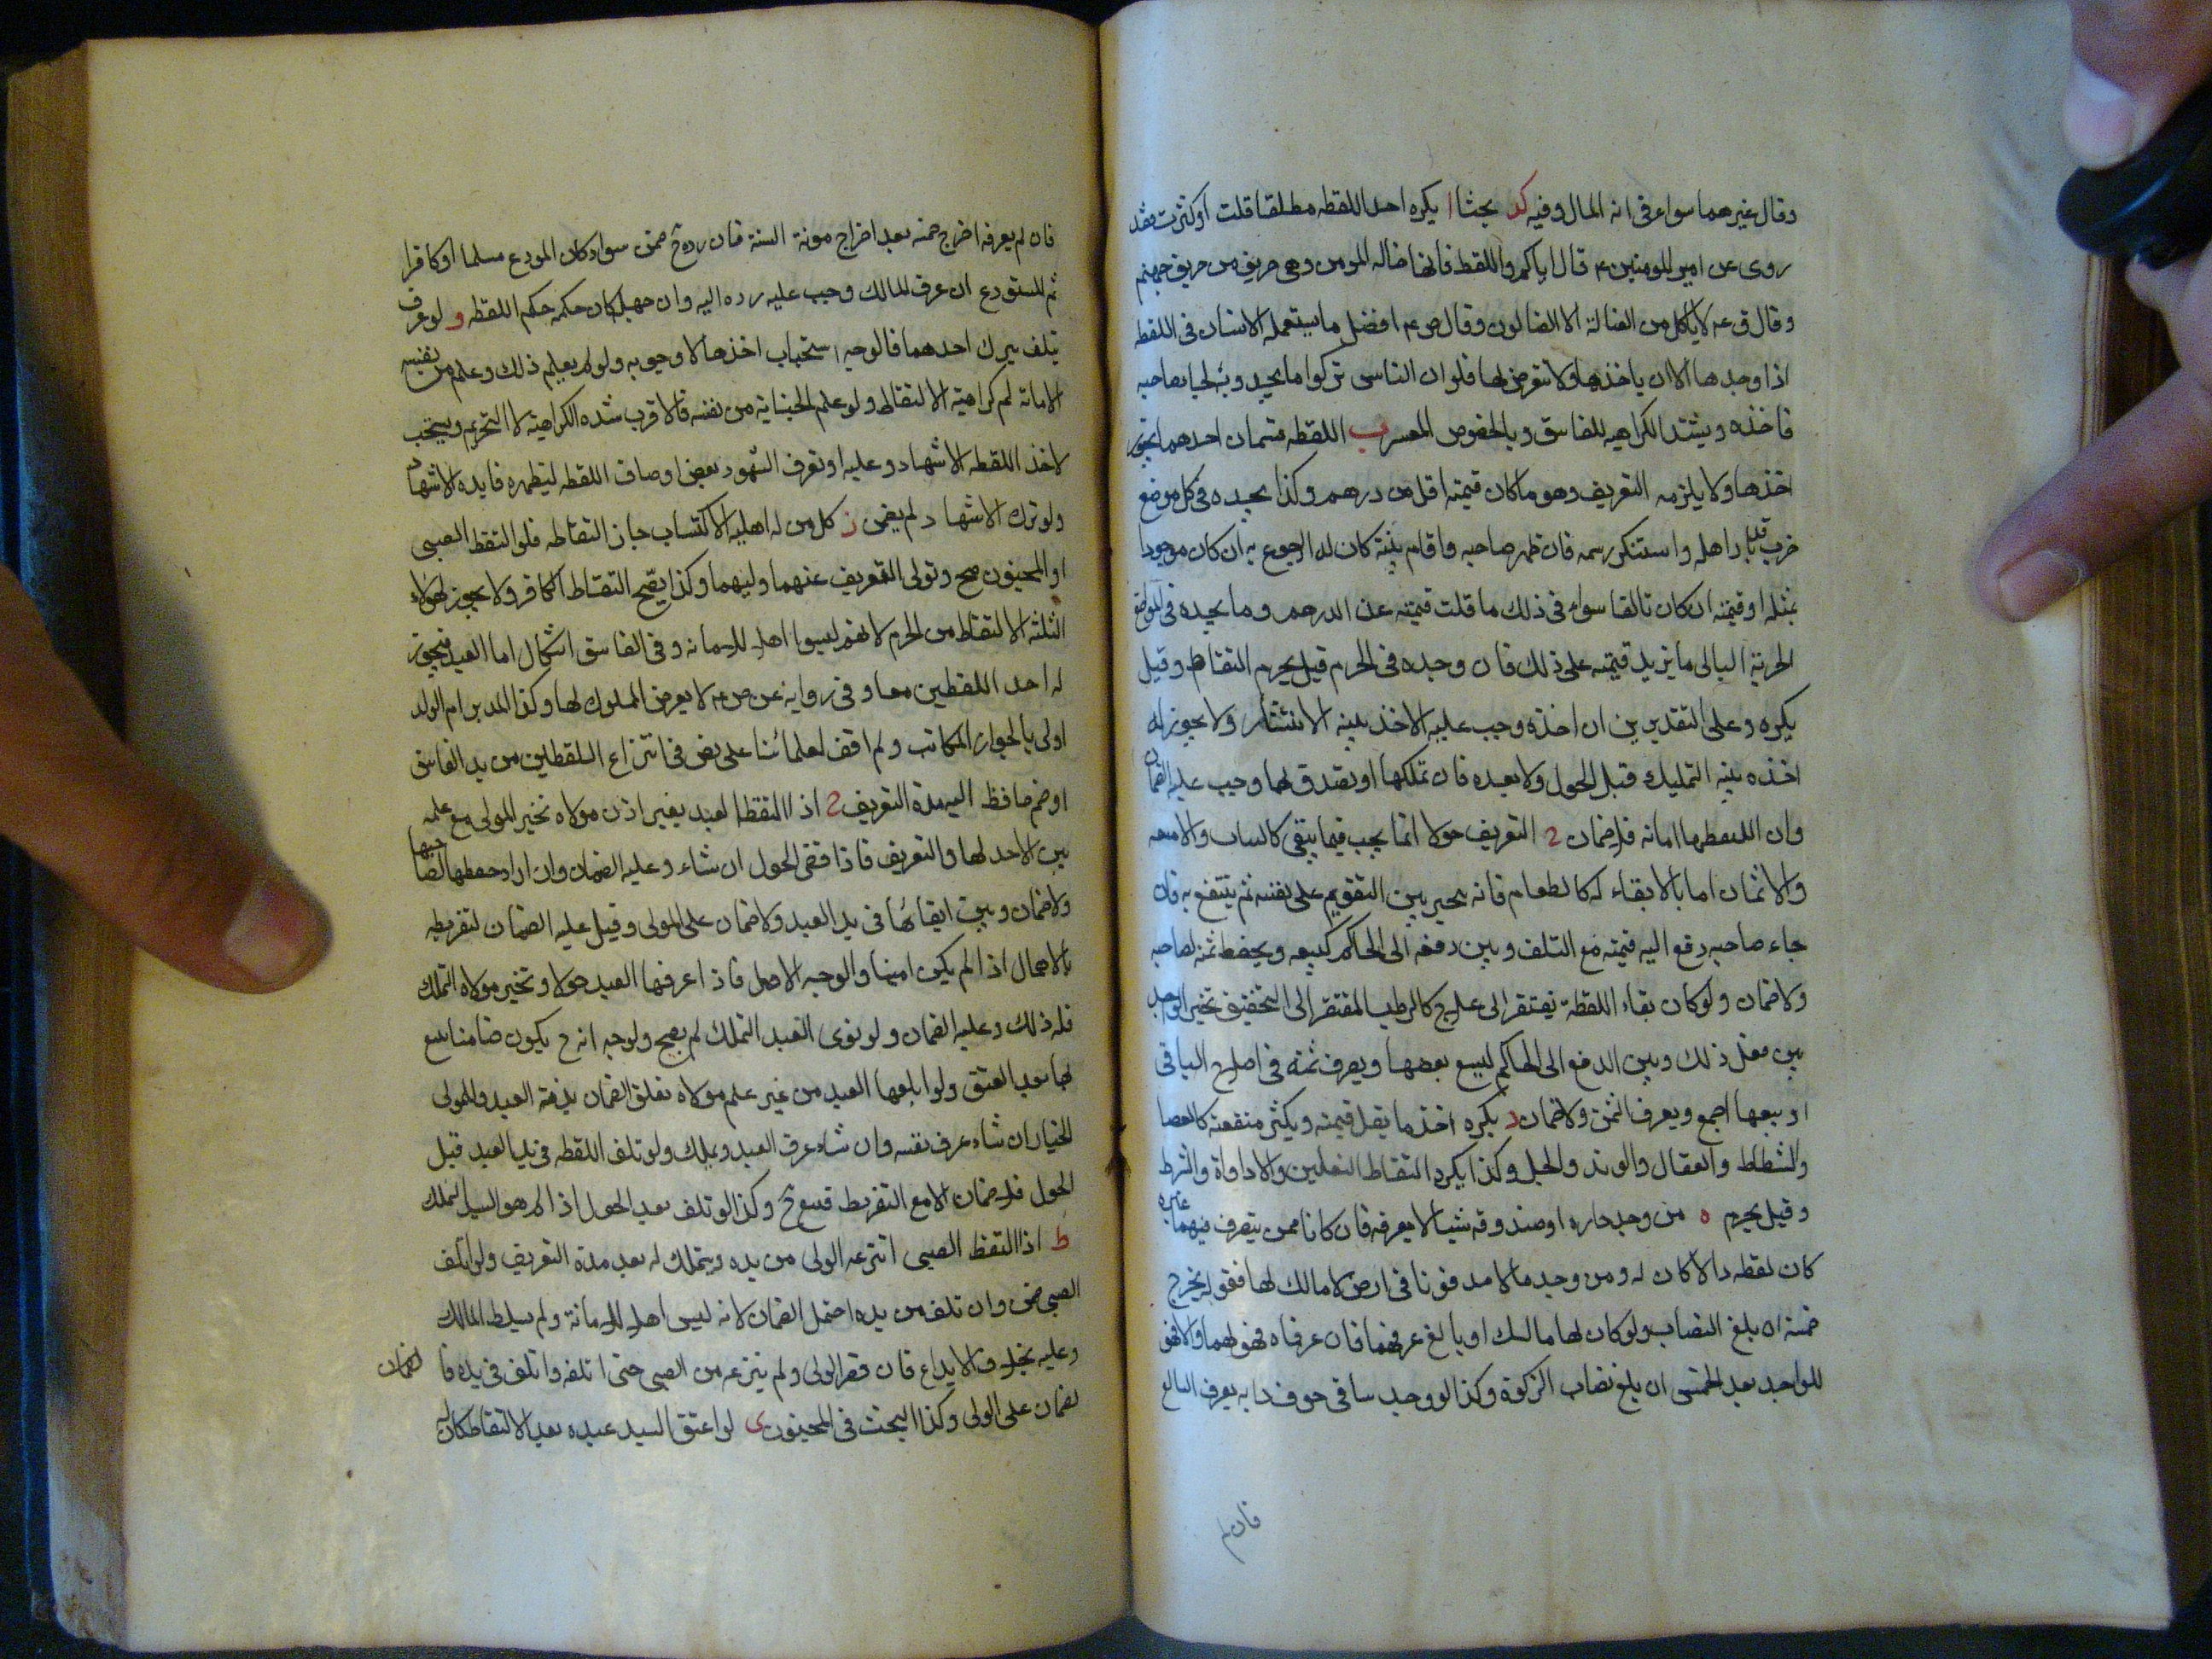 وقال غيرهما سواء فى انه المال وفيه كد بحثا ا يكره اخذ اللقطه مطلقا قلت او كثرت فقد
روى عن امير المومنين ع قال اياكم واللقطه فانها ضاله المومن وهى حريق من حريق جهنم
وقال ق ع لا ياكل من الضالة الا الضالون وقال ص ع افضل ما يستعمله الانسان فى اللقطه
اذا وجدها الا ان ياخذها ولا يتعرض لها فلو ان الناس تركوا ما يجدونه لجا صاحبه
فاخذه ويشتد الكراهيه للفاسق وبالخصوص المعسر ب اللقطه قسمان احدهما يجوز
اخذها ولا يلزمه التعريف وهو ما كان قيمته اقل من درهم وكذا يجده فى كل موضع
خرب قد باد اهله واستنكر رسمه فان ظهر صاحبه واقام بينة كان له الرجوع به ان كان موجودا
بمثله او قيمته ان كان تالفا سواء فى ذلك ما قلت قيمته عن الدرهم وما يجده فى المواضع
الخربة الباقى ما يزيد قيمته على ذلك فان وجده فى الحرم قيل يحرم التقاطه وقيل
يكره وعلى التقديرين ان اخذه وجب عليه الاخذ بنيه الانشاد ولا يجوز له
اخذه بنيه التمليك قبل الحول ولا بعده فان تملكها او تصدق لها وجب عليه الضمان
وان التقطها امانه فلا ضمان ج التعريف حولا انما يجب فيما يبقى كالثياب والامتعه
والاثمان اما ما لا بقاء له كالطعام فانه يتخير بين التقويم على نفسه ثم ينتفع به فان
جاء صاحبه دفع اليه قيمته مع التلف وبين دفعه الى الحاكم ليبيعه ويحفظ ثمنه لصاحبه
ولا ضمان ولو كان بقاء اللقطة يفتقر الى علاج كالرطب المفتقر الى التجفيف تخير الواجد
بين فعل ذلك وبين الدفع الى الحاكم ليبيع بعضها ويصرف ثمنه فى اصلاح الباقى
او بيعها اجمع ويعرف الثمن ولا ضمان د يكره اخذ ما يقل قيمته ويكثر منفعته كالعصا
والشظاظ والعقال والوتد والحبل وكذا يكره التقاط النعلين والاداوة والشرط
وقيل يحرم ه من وجد داره او صندوقه شيئا لا يعرفه فان كانا ممن يتصرف فيهما غيره
كان لقطه والا كان له ومن وجد مالا مدفونا فى ارض لا مالك لها فهو له يخرج
خمسه ان بلغ النصاب ولو كان لها مالك او بايع عرفهما فان عرفاه فهو لهما والا فهو
للواجد بعد الخمس ان بلغ نصاب الزكوة وكذا لو وجد شيئا فى جوف دابه يعرف البايع
فان لم
فان لم يعرفه اخرج خمسه بعد اخراج مونة السنة فان رده ح ضمن سواء كان المودع مسلما او كافرا
ثم المستودع ان عرف المالك وجب عليه رده اليه وان جهل كان حكمه حكم اللقطه و لو عرف
تلف بترك احدهما فالوجه استحباب اخذها لا وجوبه ولو لم يعلم ذلك وعلم من نفسه
الامانة لم كراهية الالتقاط ولو علم الخيانه من نفسه فالاقرب شده الكراهية لا التحريم ويستحب
لاخذ اللقطه الاشهاد وعليه او تعرف الشهود بعض اوصاف اللقطه ليظهره فايده الاشهاد
ولو ترك الاشهاد لم يضمن ز كل من له اهلية الاكتساب جاز التقاطه فلو التقط الصبى
او المجنون صح وتولى التعريف عنهما وليهما وكذا يصح التقاط الكافر ولا يجوز لهؤلاء
الثلثه الالتقاط من الحرم لانهم ليسوا اهلا للامانه وفى الفاسق اشكال اما العبد فيجوز
له اخذ اللقطين معا وفى روايه عن ص ع لا يعرض المملوك لها وكذا المدبر ام الولد
اولى بالجواز المكاتب ولم اقف لعلمائنا على نص فى انتزاع اللقطين من يد الفاسق
او ضم حافظ اليه مدة التعريف ح اذا التقط العبد بغير اذن مولاه تخير المولى مع علمه
بين الاخذ لها والتعريف فاذا قضى الحول ان شاء وعليه الضمان وان اراد حفظها لصاحبها
ولا ضمان وبين ابقائها فى يد العبد ولا ضمان على المولى وقيل عليه الضمان لتفريطه
بالاهمال اذا لم يكن امينا والوجه الاصل فاذا عرفها العبد حولا وتخير مولاه التملك
فله ذلك وعليه الضمان ولو نوى العبد التملك لم يصح ولوجه انه ح يكون ضامنا يتبع
لها بعد العتق ولو ابلعها العبد من غير علم مولاه تعلق الضمان بذمة العبد وللمولى
الخيار ان شاء عرف نفسه وان شاء عرف العبد وتملك ولو تلف اللقطه فى يد العبد قبل
الحول فلا ضمان الا مع التفريط فيتبع ح وكذا لو تلف بعد الحول اذا لم هو السيد التملك
ط اذا التقط الصبى انتزعه الولى من يده ويتملك له بعد مدة التعريف ولو اتلف
الصبى ضمن وان تلف من يده احتمل الضمان لانه ليس اهلا للامانة ولم يسلطه المالك
وعليه بخلاف الايداع فان قصر الولى ولم ينتزعه من الصبى حتى اتلفه واتلف فى يده فا لضمان
لضمان على الولى وكذا البحث فى المجنون ى لو اعتق السيد عبده بعد الالتقاط كان له